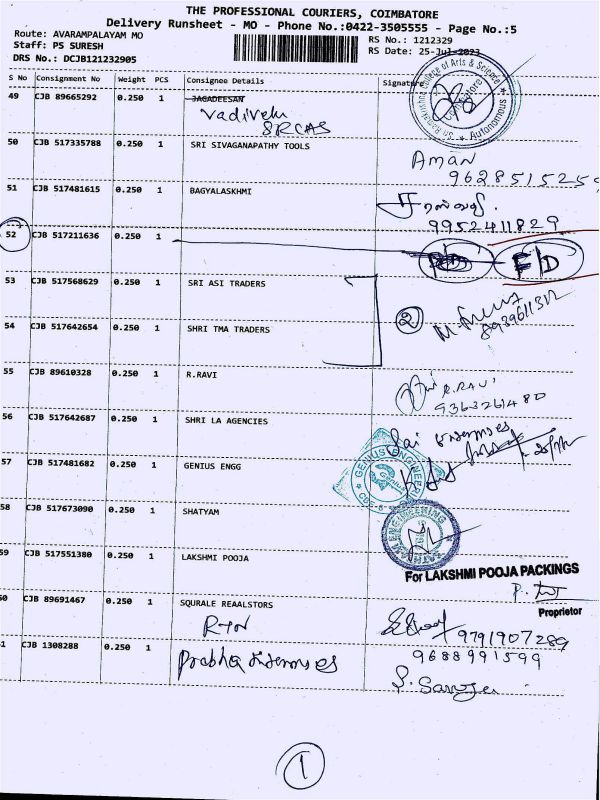 THE PROFESSIONAL COURIERS, COIMBATORE
Delivery Runsheet - MO - Phone No.:0422-3505555 - Page No.:5
Route: AVARAMPALAYAM MO
RS No.: 1212329
Staff: PS SURESH
RS Date: 25-Jul-2023
DRS No.: DCJB121232905
S No Consignment No Weight PCS Consignee Details Signature
49 CJB 89665292 0.250 1 JAGADEESAN
Vadivelu
SRCAS
Sri Ramakrishna College of Arts & Science
Coimbatore
Autonomous
50 CJB 517335788 0.250 1 SRI SIVAGANAPATHY TOOLS
AMAN
9628515259
51 CJB 517481615 0.250 1 BAGYALASKHMI
9952411829
52 CJB 517211636 0.250 1
F/D
53 CJB 517568629 0.250 1 SRI ASI TRADERS
2
8939611312
54 CJB 517642654 0.250 1 SHRI TMA TRADERS
55 CJB 89610328 0.250 1 R.RAVI
R.RAVI
9363261480
56 CJB 517642687 0.250 1 SHRI LA AGENCIES
Sai
57 CJB 517481682 0.250 1 GENIUS ENGG
GENIUS ENGINEERING
Genius
58 CJB 517673090 0.250 1 SHATYAM
ENGINEERING
59 CJB 517551380 0.250 1 LAKSHMI POOJA
For LAKSHMI POOJA PACKINGS
P.
Proprietor
60 CJB 89691467 0.250 1 SQURALE REAALSTORS
RTN
9791907289
61 CJB 1308288 0.250 1
Prabha
9688991599
S. Saroja
1